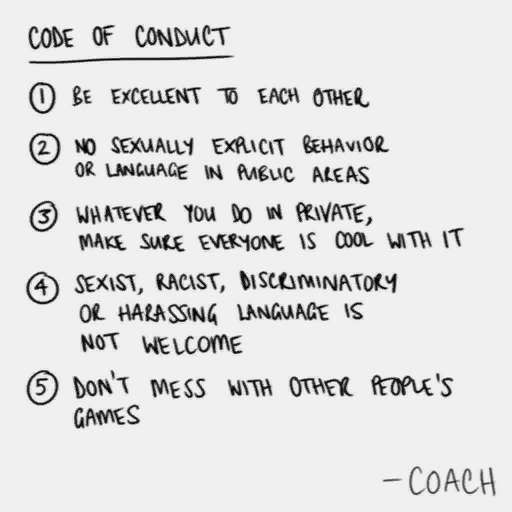 CODE OF CONDUCT
① BE EXCELLENT TO EACH OTHER
② NO SEXUALLY EXPLICIT BEHAVIOR
OR LANGUAGE IN PUBLIC AREAS
③ WHATEVER YOU DO IN PRIVATE,
MAKE SURE EVERYONE IS COOL WITH IT
④ SEXIST, RACIST, DISCRIMINATORY
OR HARASSING LANGUAGE IS
NOT WELCOME
⑤ DON'T MESS WITH OTHER PEOPLE'S
GAMES
- COACH